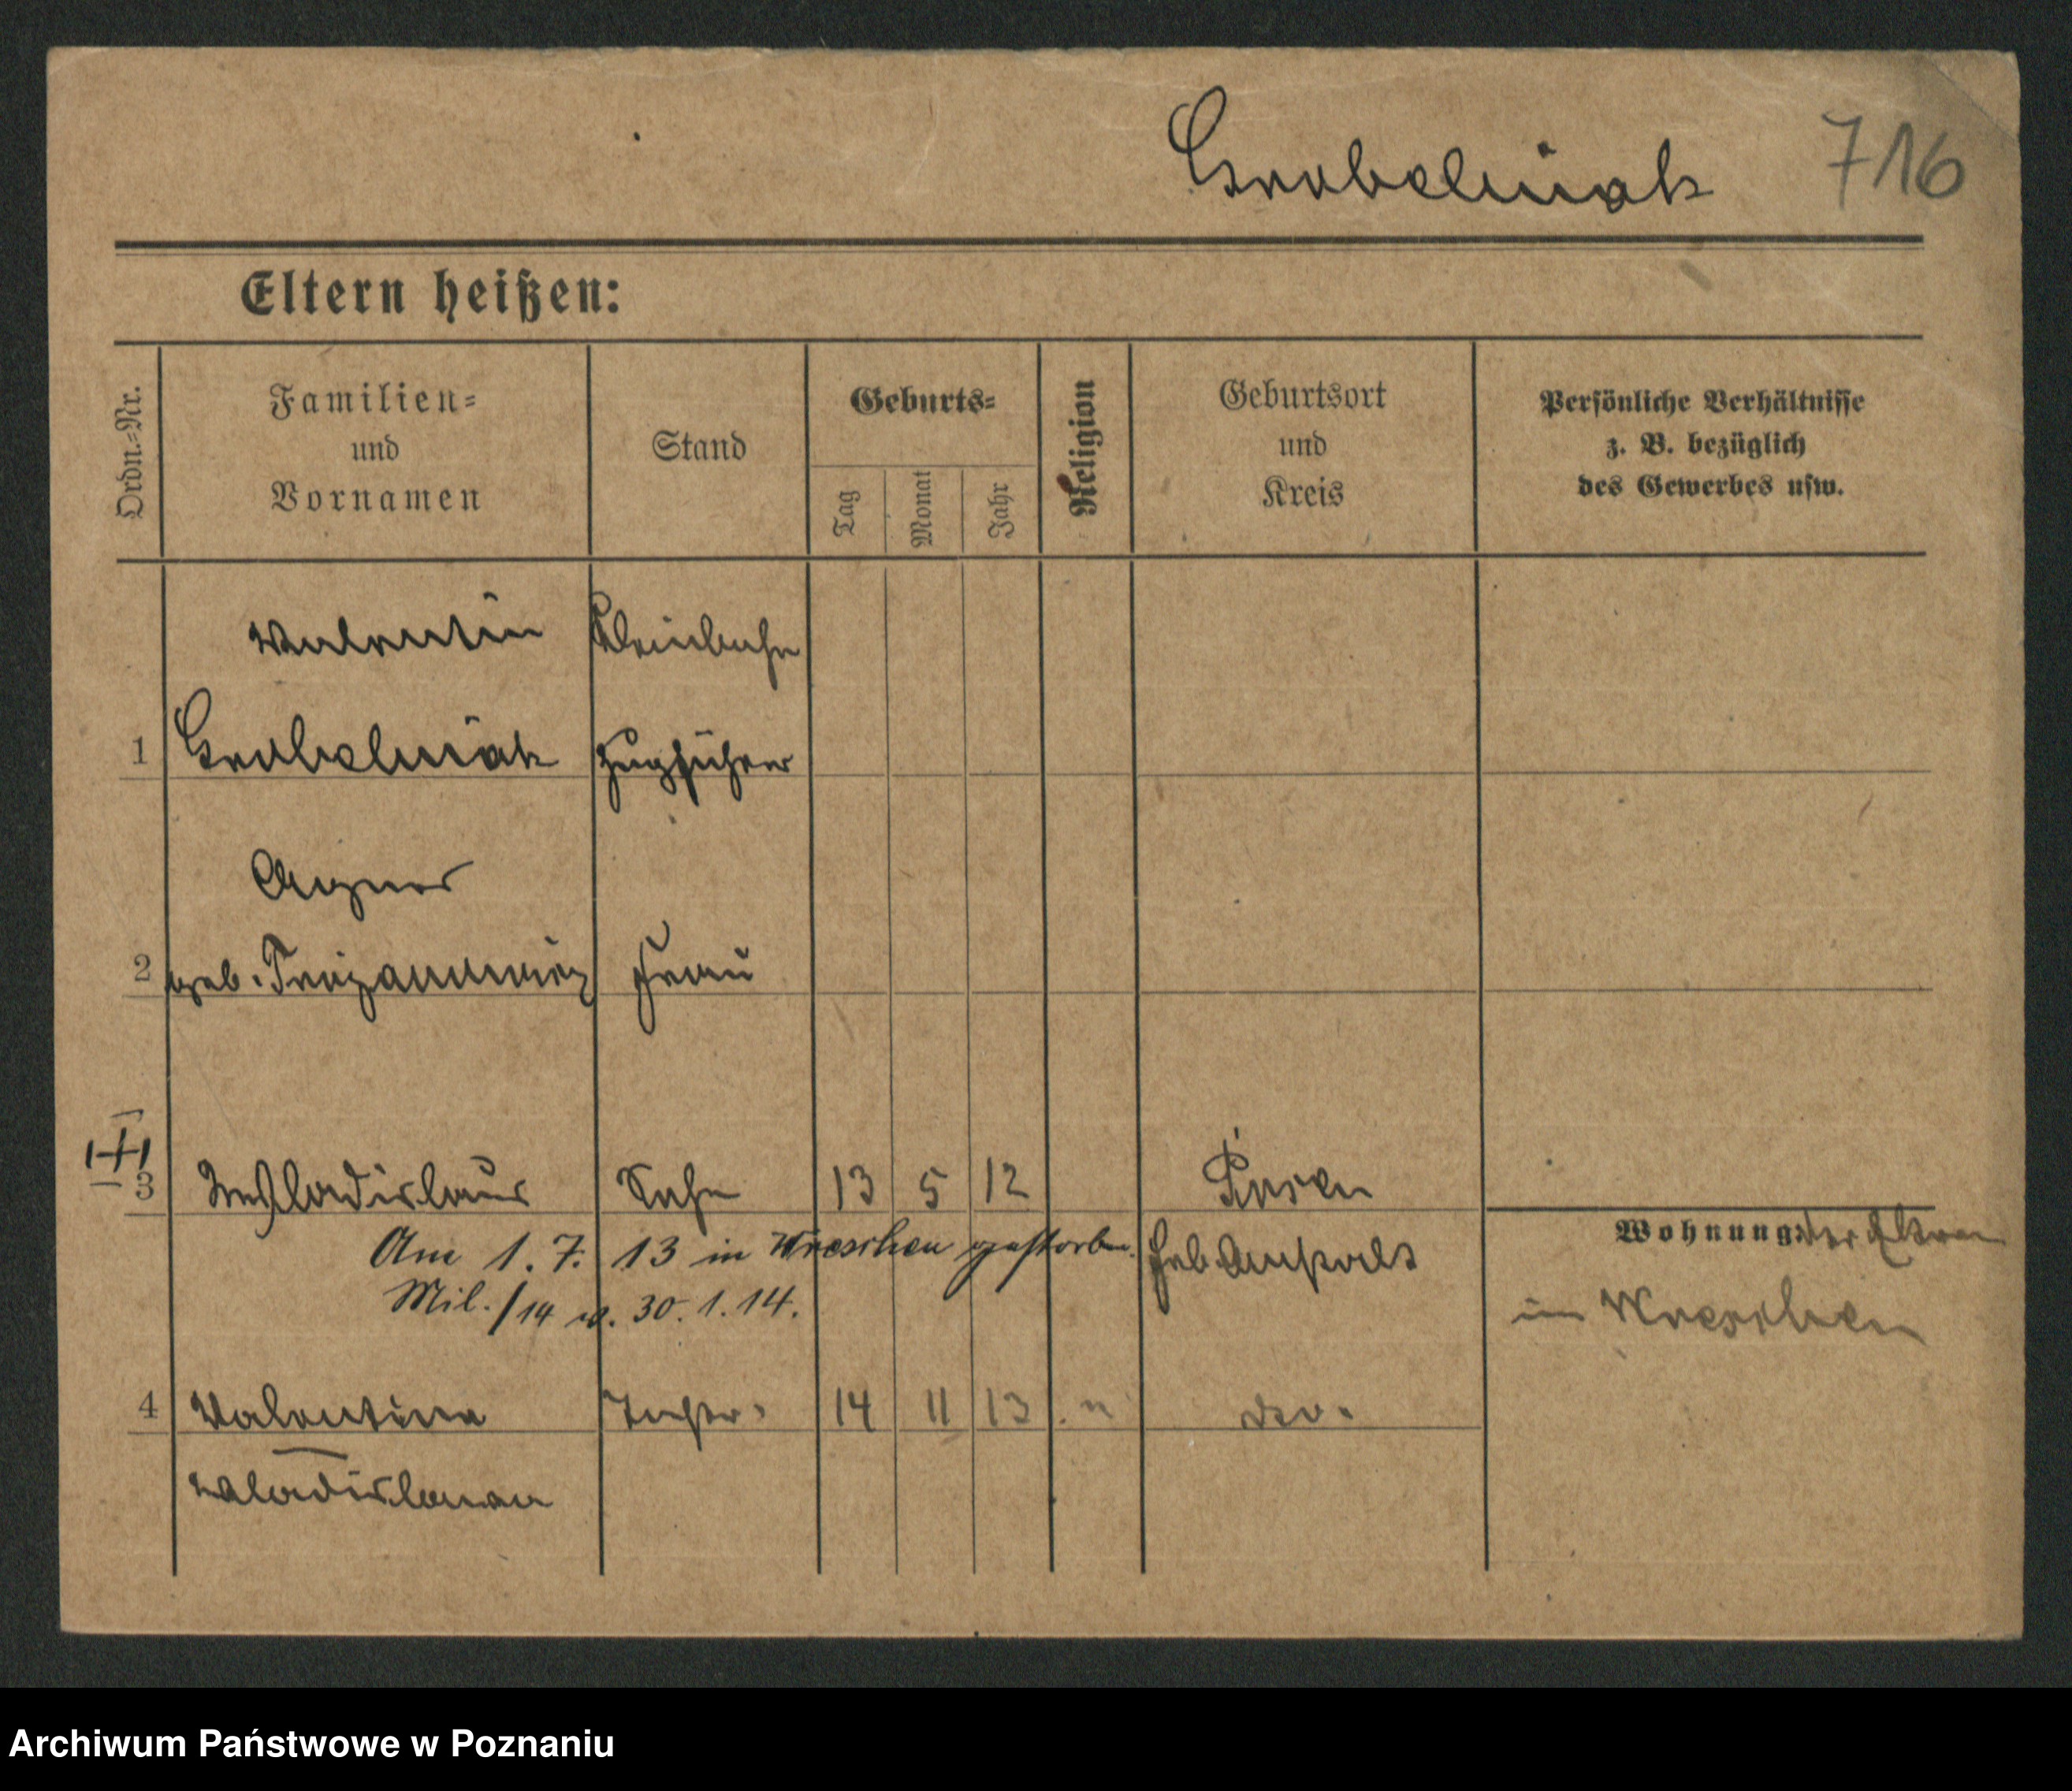 Grobelniak 716
Eltern heißen:
Ordn.-Nr.
Familien-
und
Vornamen
Stand
Geburts-
Tag
Monat
Jahr
Religion
Geburtsort
und
Kreis
Persönliche Verhältnisse
z. B. bezüglich
des Gewerbes usw.
Valentin Kleinbahn
1 Grobelniak Zugführer
Agnes
2 geb. Frau
3 Wladislaus Sohn 13 5 12 Posen
Am 1. 7. 13 in Wreschen gestorben. Heb. Anstalt
Wohnung: der Eltern
Mil./14 v. 30. 1. 14.
in Wreschen
4 Valentine Tochter 14 11 13 " dto.
Wladislawa
Archiwum Państwowe w Poznaniu